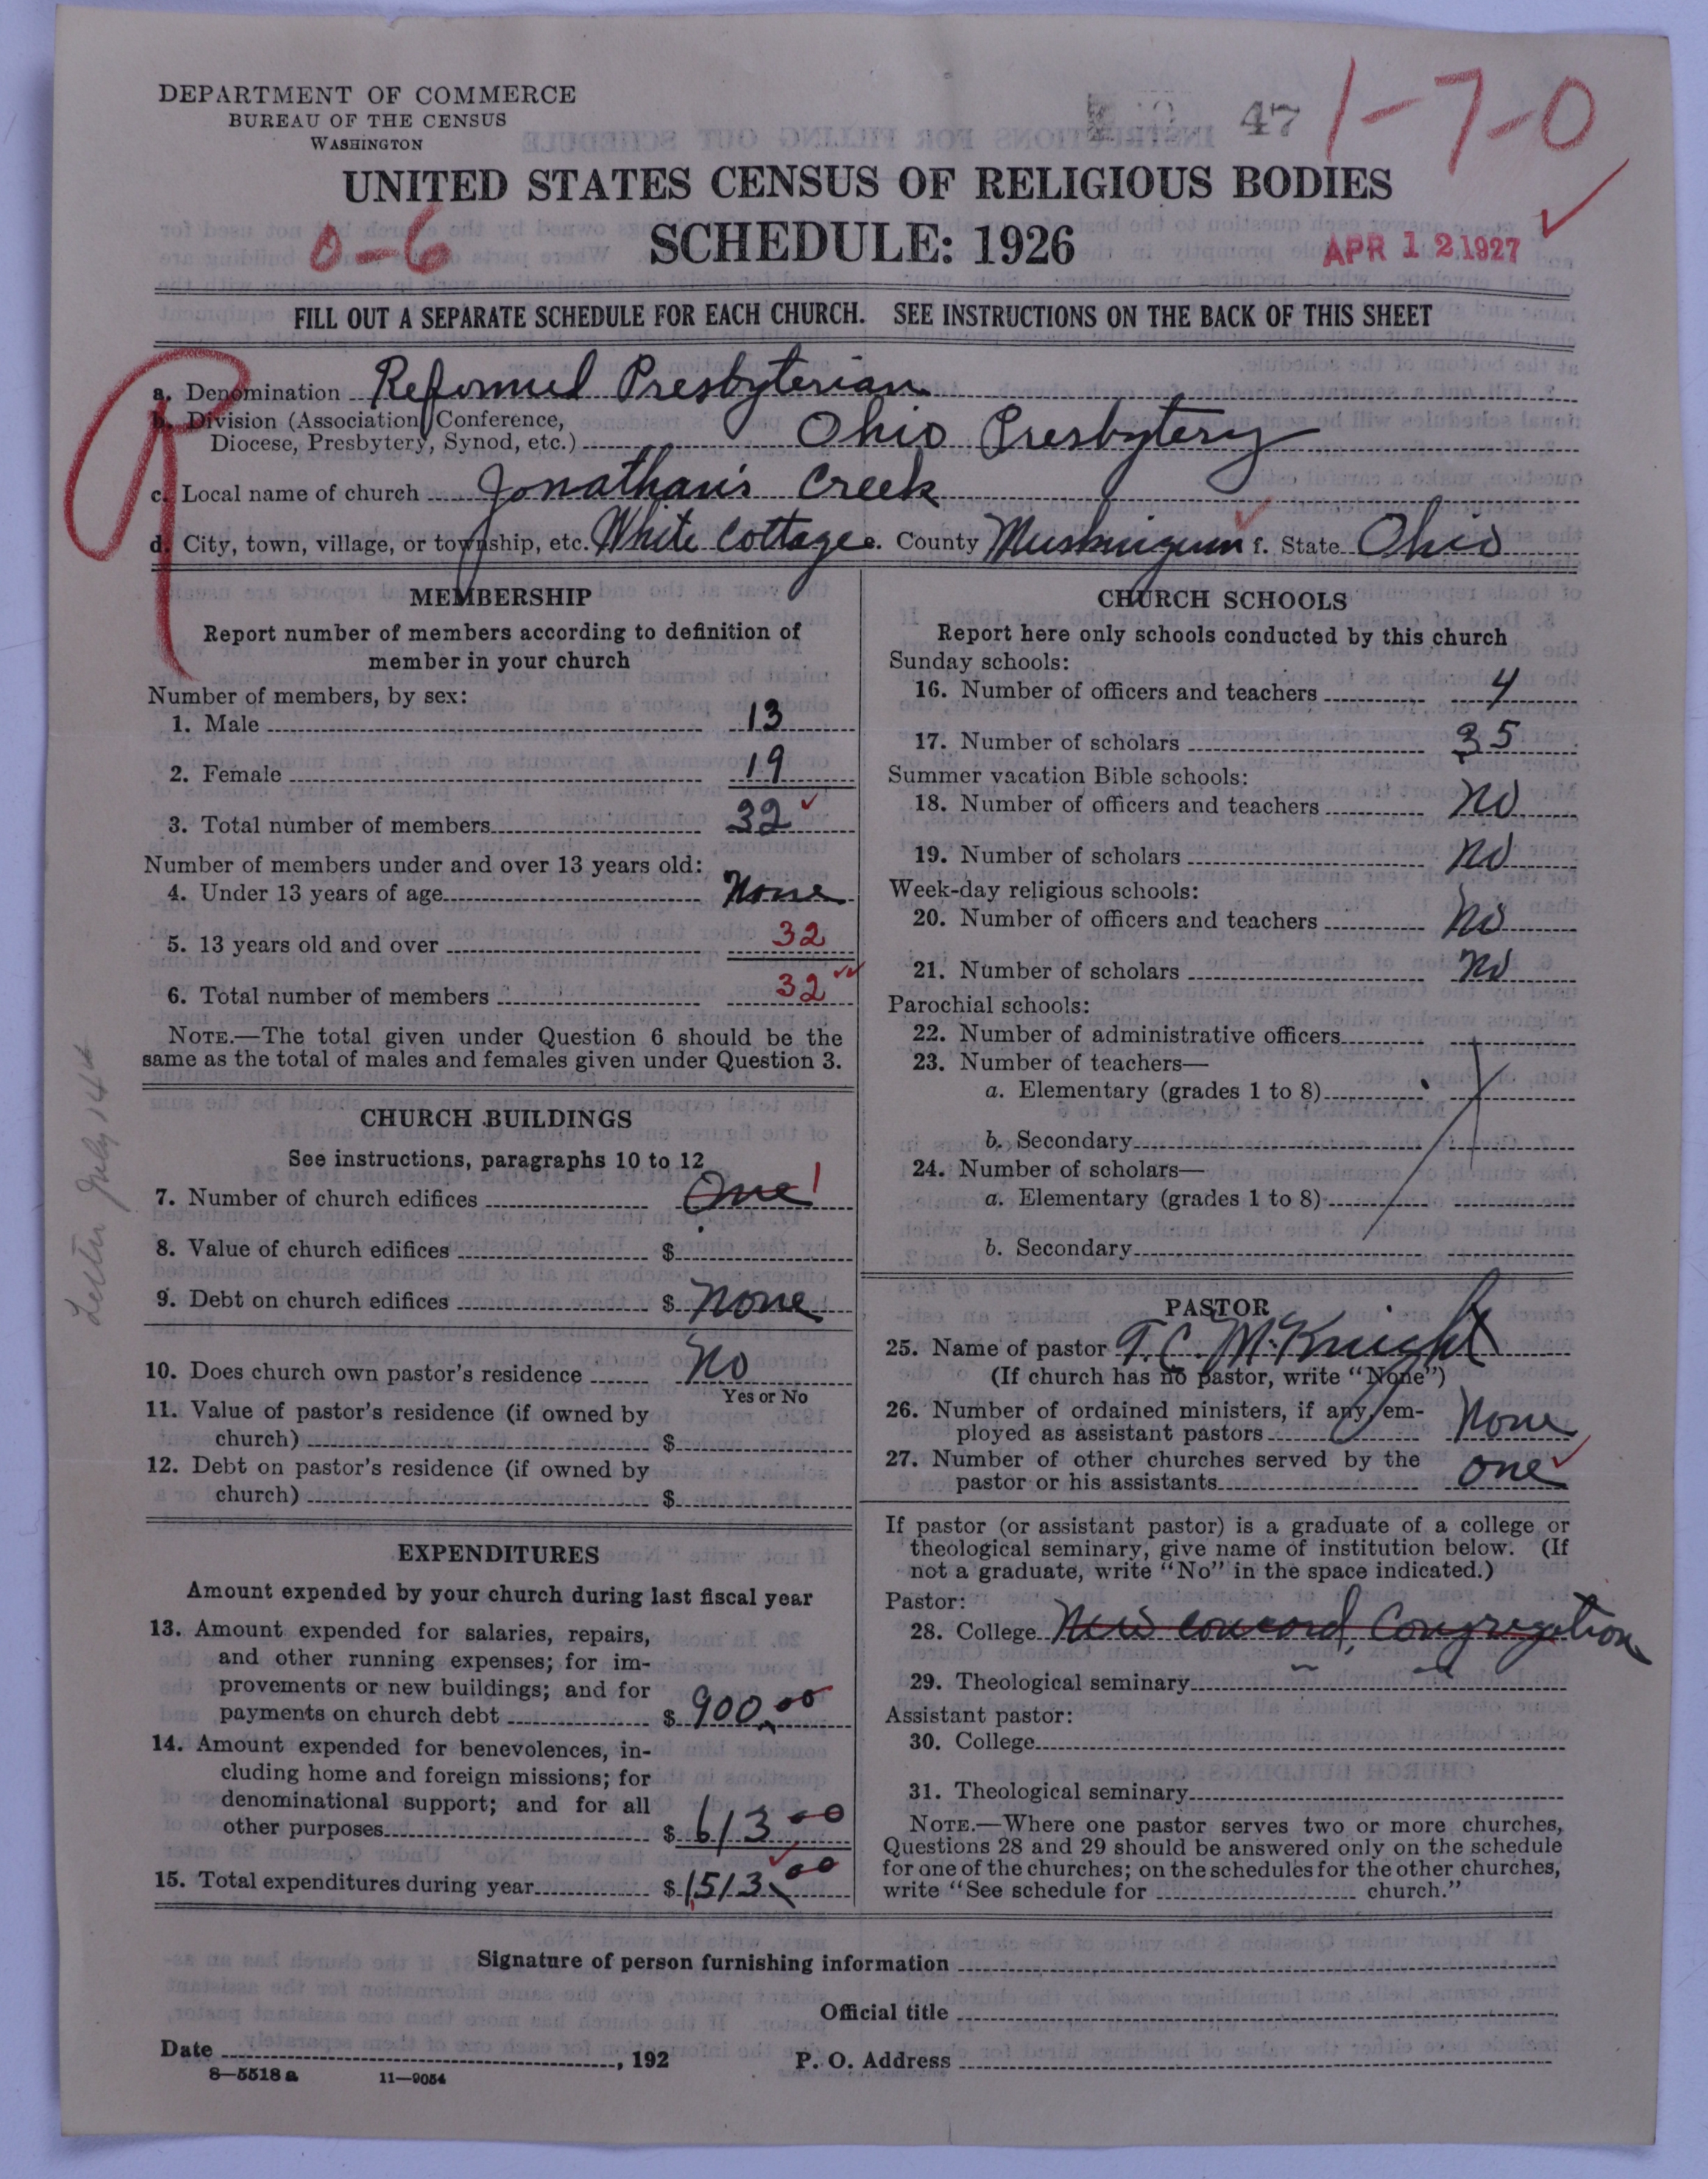 DEPARTMENT OF COMMERCE
BUREAU OF THE CENSUS
WASHINGTON
47
1-7-0
UNITED STATES CENSUS OF RELIGIOUS BODIES
0-6
SCHEDULE: 1926
APR 12 1927
FILL OUT A SEPARATE SCHEDULE FOR EACH CHURCH. SEE INSTRUCTIONS ON THE BACK OF THIS SHEET
a. Denomination Reformed Presbyterian
b. Division (Association, Conference,
Diocese, Presbytery, Synod, etc.) Ohio Presbytery
c. Local name of church Jonathan's Creek
d. City, town, village, or township, etc. White Cottage e. County Muskingum f. State Ohio
MEMBERSHIP
Report number of members according to definition of
member in your church
Number of members, by sex:
1. Male 13
2. Female 19
3. Total number of members 32
Number of members under and over 13 years old:
4. Under 13 years of age None
5. 13 years old and over 32
6. Total number of members 32
NOTE.—The total given under Question 6 should be the
same as the total of males and females given under Question 3.
Letter July 14th
CHURCH BUILDINGS
See instructions, paragraphs 10 to 12
7. Number of church edifices One 1
8. Value of church edifices $
9. Debt on church edifices $ None
10. Does church own pastor's residence No
Yes or No
11. Value of pastor's residence (if owned by
church) $
12. Debt on pastor's residence (if owned by
church) $
EXPENDITURES
Amount expended by your church during last fiscal year
13. Amount expended for salaries, repairs,
and other running expenses; for im-
provements or new buildings; and for
payments on church debt $ 900.00
14. Amount expended for benevolences, in-
cluding home and foreign missions; for
denominational support; and for all
other purposes $ 613.00
15. Total expenditures during year $ 1,513.00
CHURCH SCHOOLS
Report here only schools conducted by this church
Sunday schools:
16. Number of officers and teachers 4
17. Number of scholars 35
Summer vacation Bible schools:
18. Number of officers and teachers No
19. Number of scholars No
Week-day religious schools:
20. Number of officers and teachers No
21. Number of scholars No
Parochial schools:
22. Number of administrative officers
23. Number of teachers—
a. Elementary (grades 1 to 8)
b. Secondary
24. Number of scholars—
a. Elementary (grades 1 to 8)
b. Secondary
PASTOR
25. Name of pastor T. C. McKnight
(If church has no pastor, write "None")
26. Number of ordained ministers, if any, em-
ployed as assistant pastors None
27. Number of other churches served by the
pastor or his assistants one
If pastor (or assistant pastor) is a graduate of a college or
theological seminary, give name of institution below. (If
not a graduate, write "No" in the space indicated.)
Pastor:
28. College New Concord, Congregation
29. Theological seminary
Assistant pastor:
30. College
31. Theological seminary
NOTE.—Where one pastor serves two or more churches,
Questions 28 and 29 should be answered only on the schedule
for one of the churches; on the schedules for the other churches,
write "See schedule for church."
Signature of person furnishing information
Official title
Date , 192
P. O. Address
8—5518 a 11—9054